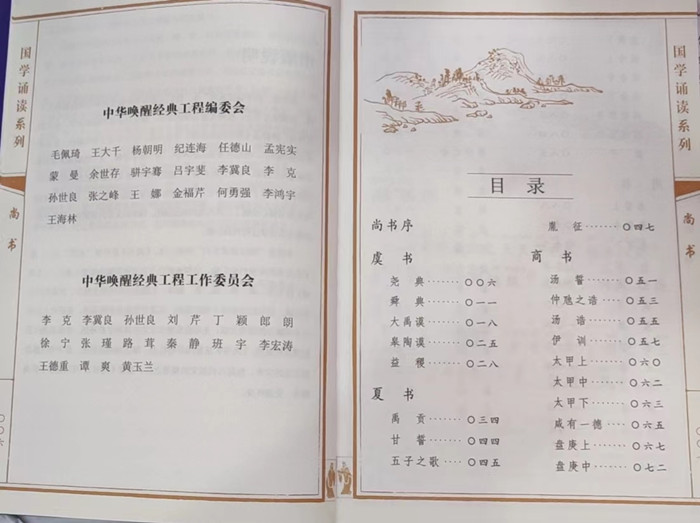 国学诵读系列
尚书
中华唤醒经典工程编委会
毛佩琦 王大千 杨朝明 纪连海 任德山 孟宪实
蒙曼 余世存 骈宇骞 吕宇斐 李冀良 李克
孙世良 张之峰 王娜 金福芹 何勇强 李鸿宇
王海林
中华唤醒经典工程工作委员会
李克 李冀良 孙世良 刘芹 丁颖 郎朗
徐宁 张瑾 路茸 秦静 班宇 李宏涛
王德重 谭爽 黄玉兰
目录
尚书序
虞书
尧典……〇〇六
舜典……〇一一
大禹谟……〇一八
皋陶谟……〇二五
益稷……〇二八
夏书
禹贡……〇三四
甘誓……〇四四
五子之歌……〇四五
胤征……〇四七
商书
汤誓……〇五一
仲虺之诰……〇五三
汤诰……〇五五
伊训……〇五七
太甲上……〇六〇
太甲中……〇六二
太甲下……〇六三
咸有一德……〇六五
盘庚上……〇六七
盘庚中……〇七二
国学诵读系列
尚书